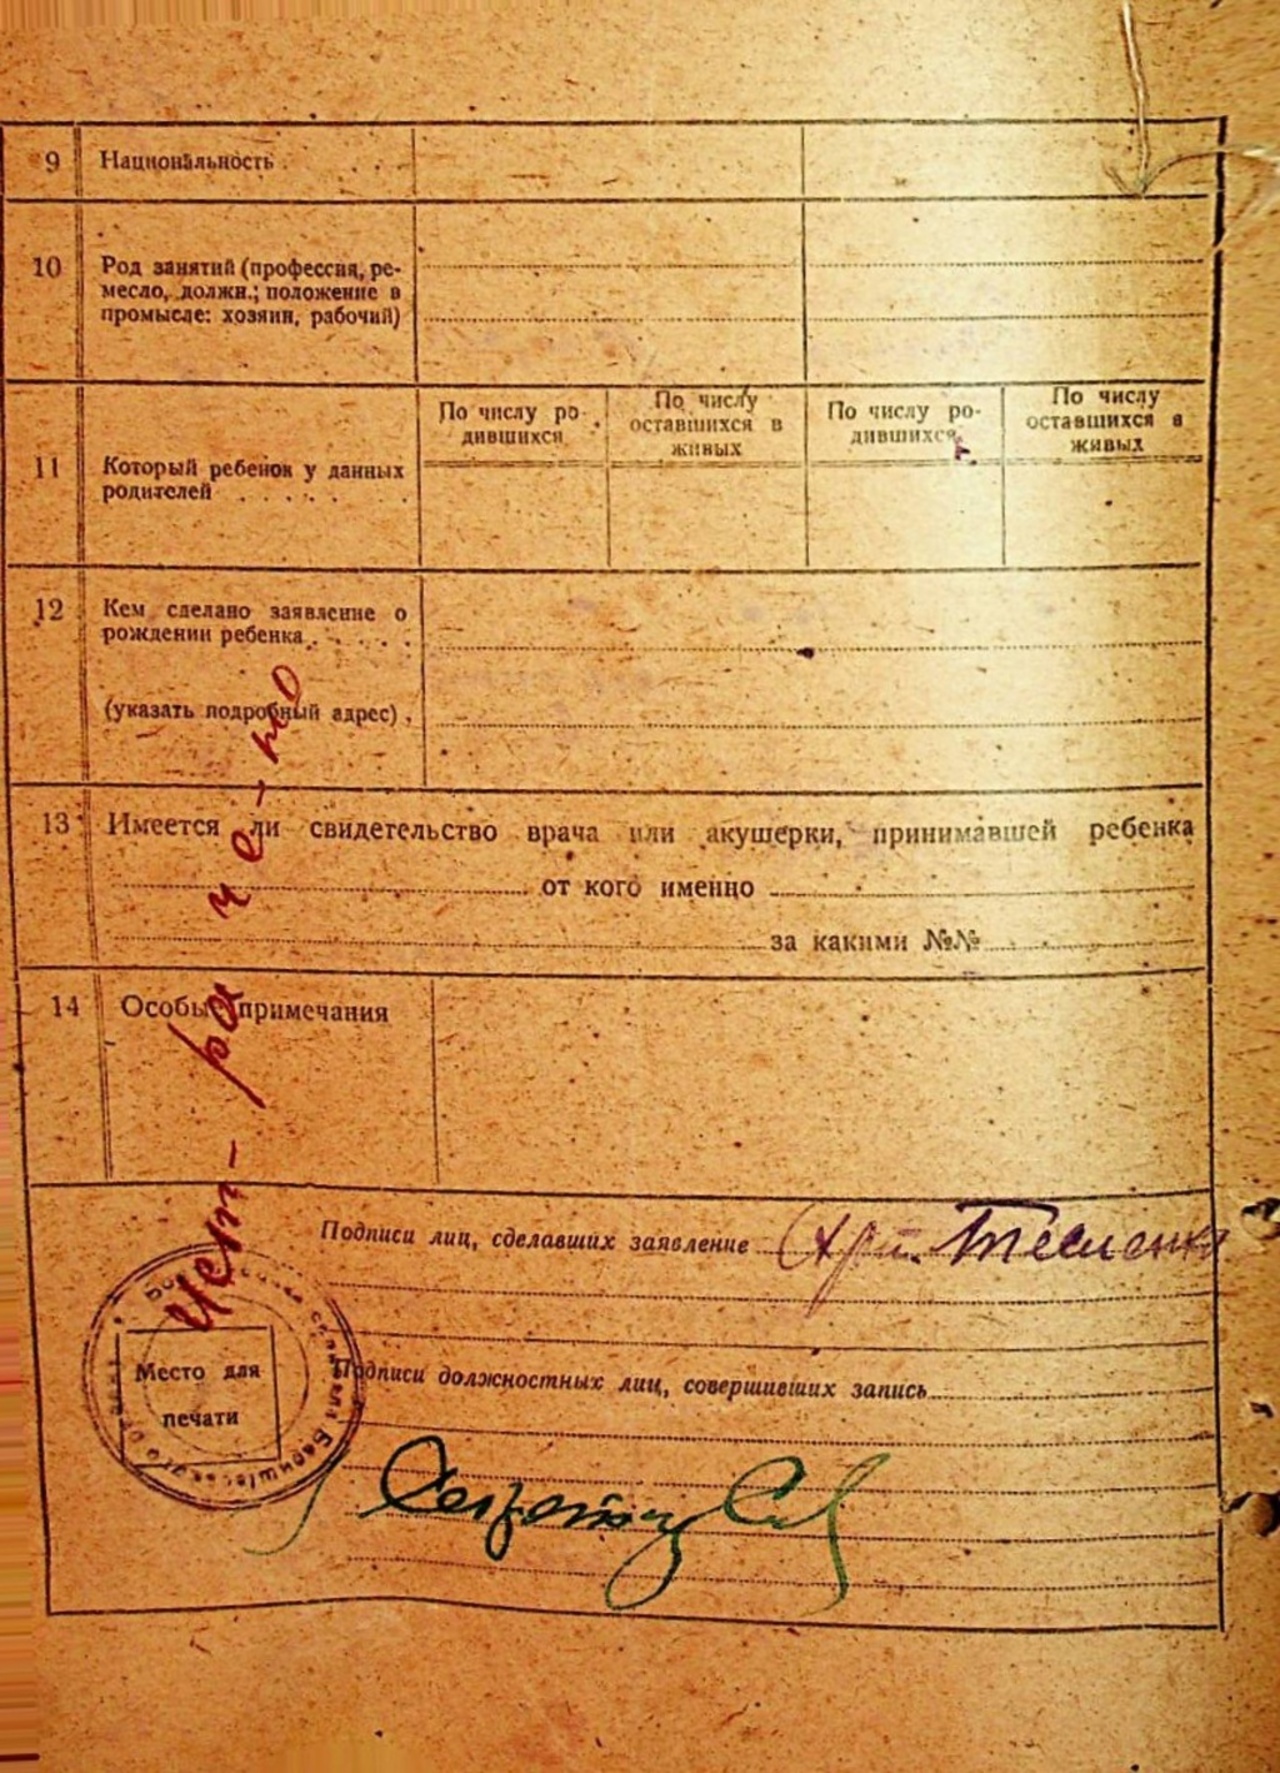 9 Национальность . . . .
10 Род занятий (профессия, ре-
месло, должн.; положение в
промысле: хозяин, рабочий)
По числу ро-
дившихся
По числу
оставшихся в
живых
По числу ро-
дившихся
По числу
оставшихся в
живых
11 Который ребенок у данных
родителей . . . . . .
12 Кем сделано заявление о
рождении ребенка . . . . .
(указать подробный адрес) .
13 Имеется ли свидетельство врача или акушерки, принимавшей ребенка
от кого именно
за какими №№
14 Особые примечания
Подписи лиц, сделавших заявление
Место для
печати
Подписи должностных лиц, совершивших запись
Секретар